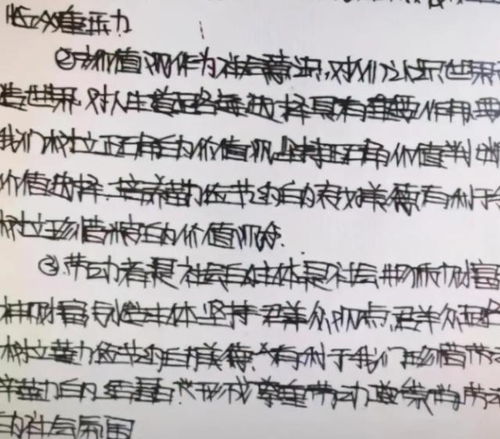 ②价值观作为社会意识,对人们认识世界
造世界,对人生道路选择具有重要作用,要
我们树立正确的价值观,坚持正确价值判断
价值选择,培养勤俭节约的美德有利于
树立珍惜粮食的价值观念.
③劳动者是社会主体是社会物质财富
神财富创造主体,坚持群众观点,群众路
树立勤俭节约的美德,有利于我们珍惜劳
形成尊重劳动
的社会氛围